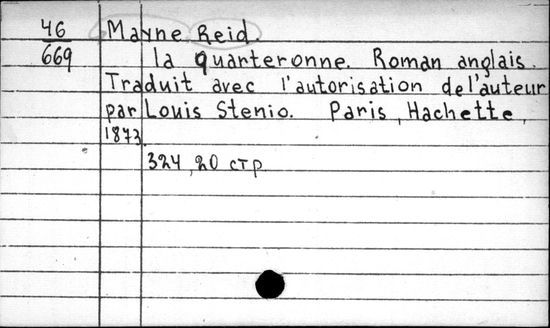 46
669
Mayne Reid.
la quarteronne. Roman anglais.
Traduit avec l'autorisation de l'auteur
par Louis Stenio. Paris, Hachette,
1873.
324, 20 стр.